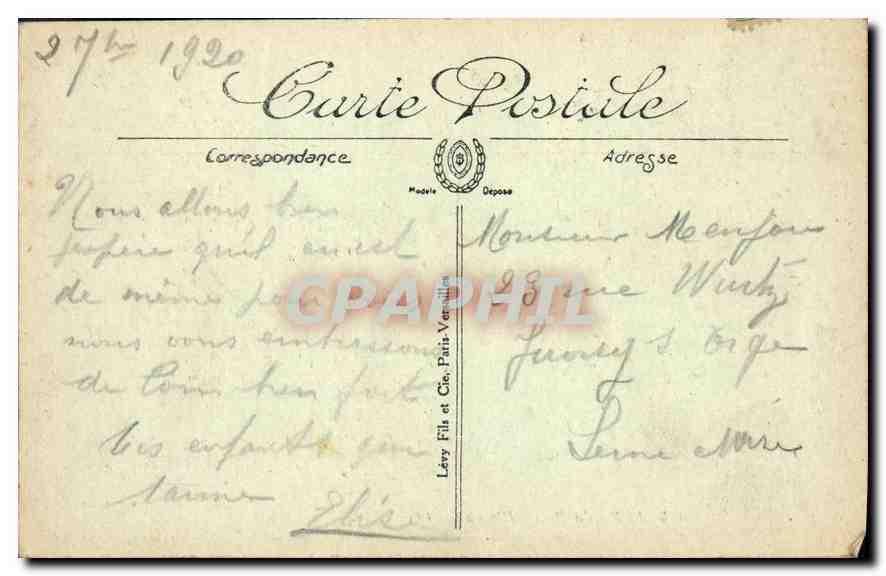 2 7bre 1920
Carte Postale
Correspondance
Adresse
Modèle Déposé
Nous allons bien
j'espère qu'il en est
de même pour vous
nous vous embrassons
de loin bien fort
tes enfants qui
t'aime
Elise
Lévy Fils et Cie, Paris-Versailles
CPAPHIL
Monsieur Menjou
23 rue Wurtz
Juvisy s Orge
Seine